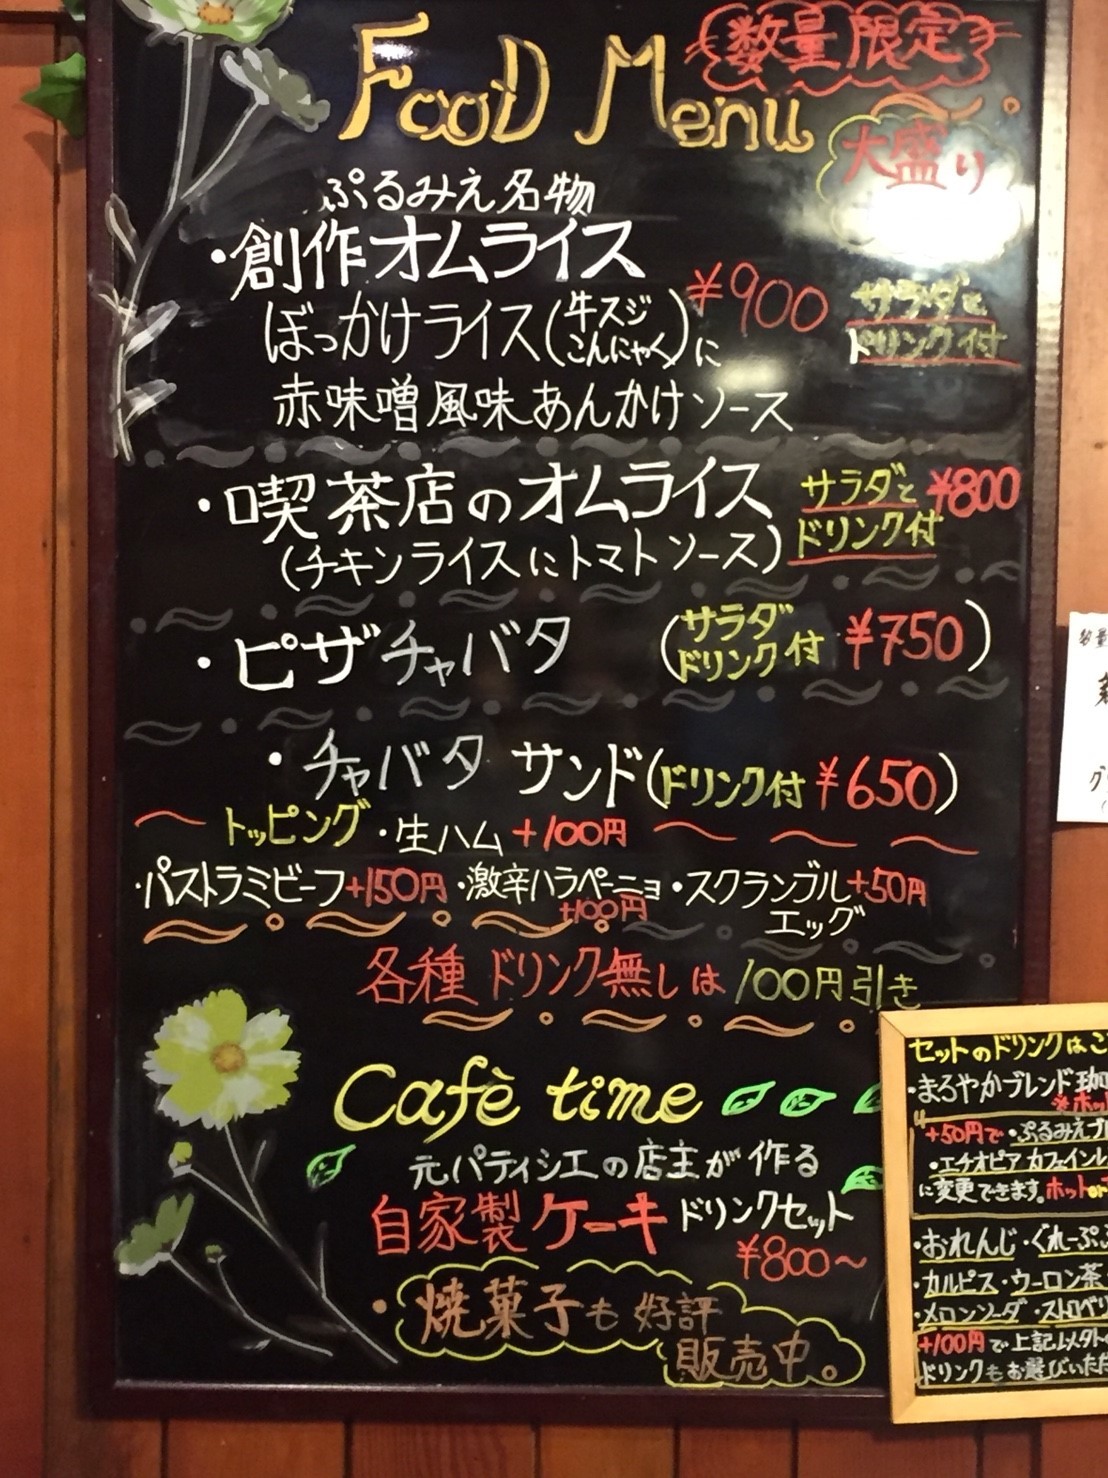 Food Menu
数量限定
大盛り
ぷるみえ名物
・創作オムライス
¥900
サラダと
ドリンク付
ぼっかけライス(牛スジ
こんにゃく)に
赤味噌風味あんかけソース
・喫茶店のオムライス
サラダと
ドリンク付
¥800
(チキンライスにトマトソース)
・ピザチャバタ
(サラダ
ドリンク付 ¥750)
・チャバタ サンド(ドリンク付 ¥650)
トッピング ・生ハム +100円
・パストラミビーフ+150円 ・激辛ハラペーニョ
+100円
・スクランブル
エッグ
+50円
各種 ドリンク無しは 100円引き
Cafè time
元パティシエの店主が作る
自家製ケーキ ドリンクセット
¥800〜
・焼菓子も好評
販売中。
セットのドリンクは
・まろやかブレンド
+50円で・ぷるみえ
・エチオピア カフェインレ
に変更できます。ホットor
・おれんじ・ぐれーぷ
・カルピス・ウーロン茶
・メロンソーダ・ストロベリ
+100円で上記以外
ドリンクもお選びいただ